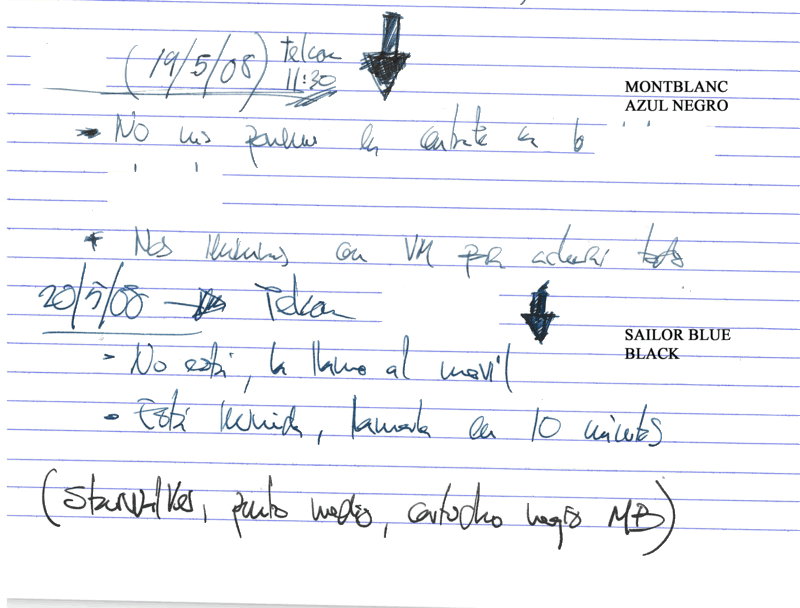 (19/5/08) telcon
11:30
MONTBLANC
AZUL NEGRO
- No nos ponemos en
+ Nos reunimos con VM para aclarar
20/5/08 → Telcon
SAILOR BLUE
BLACK
- No está, la llamo al movil
- Está reunida, llamarla en 10 minutos
(Starwalker, punto medio, cartucho negro MB)